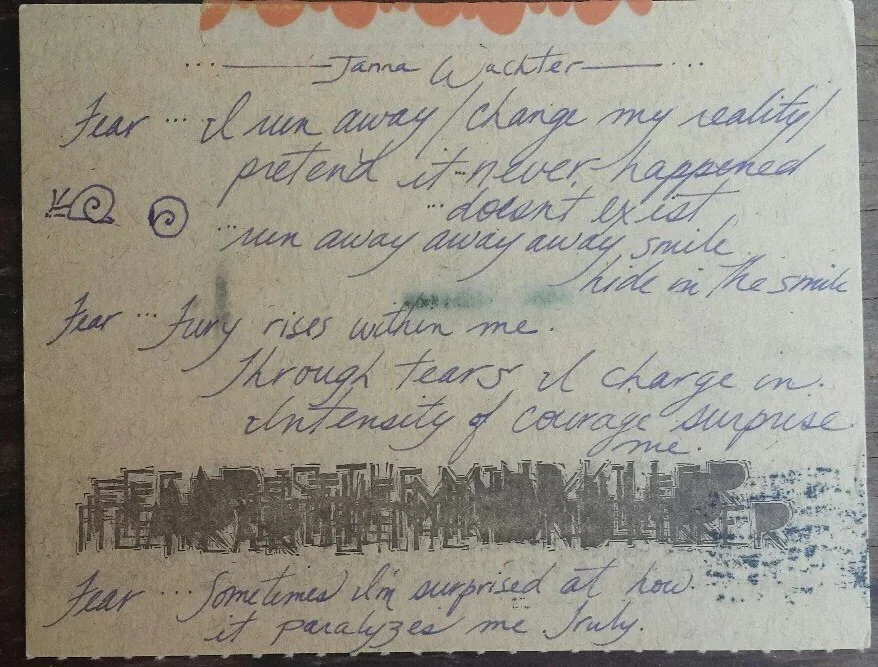 ... Janna Wachter ...
Fear ... I run away / change my reality /
pretend it never happened
... doesnt exist
... run away away away smile
hide in the smile
Fear ... Fury rises within me.
Through tears I charge in.
Intensity of courage surprise
me.
FEAR IS THE MIND KILLER
Fear ... Sometimes I'm surprised at how
it paralyzes me Truly.